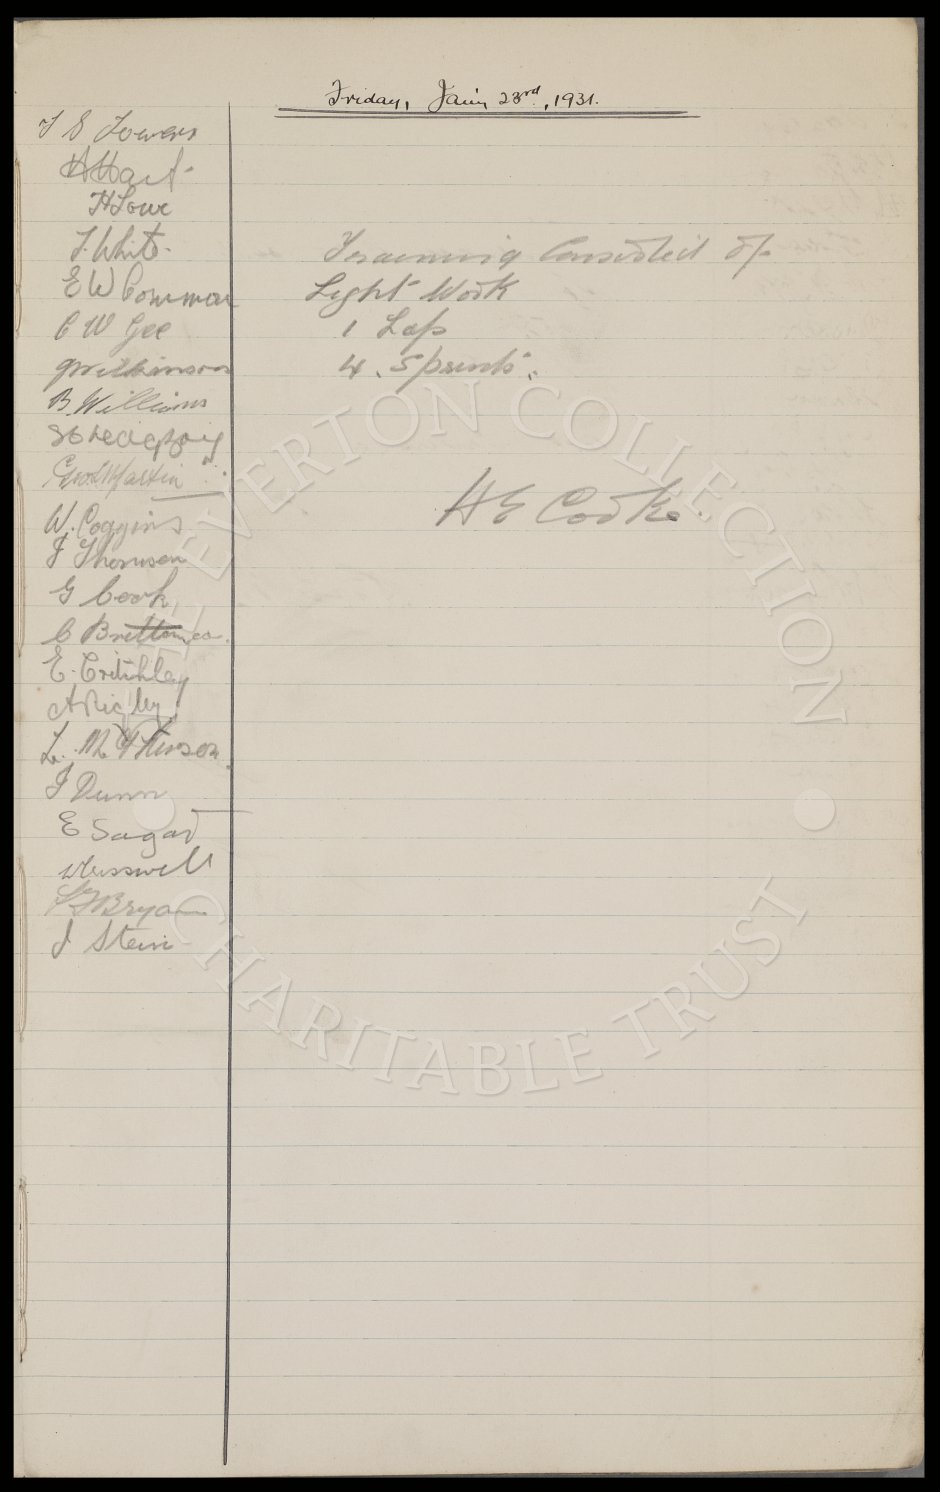 Friday, Jan'y 23rd, 1931.
J S Lowers
H Hart
H Lowe
T. White.
E W Common
C W Gee
J Wilkinson
B. Williams
Geo S Martin
W. Coggins
J Thomson
G Cook
C Britton
E. Critchley
A Rigby
L. McPherson
J Dunn
E Sagar
J Stein
Training Consisted Of
Light Work
1 Lap
4. Sprints.
H E Cooke.
THE EVERTON COLLECTION
CHARITABLE TRUST